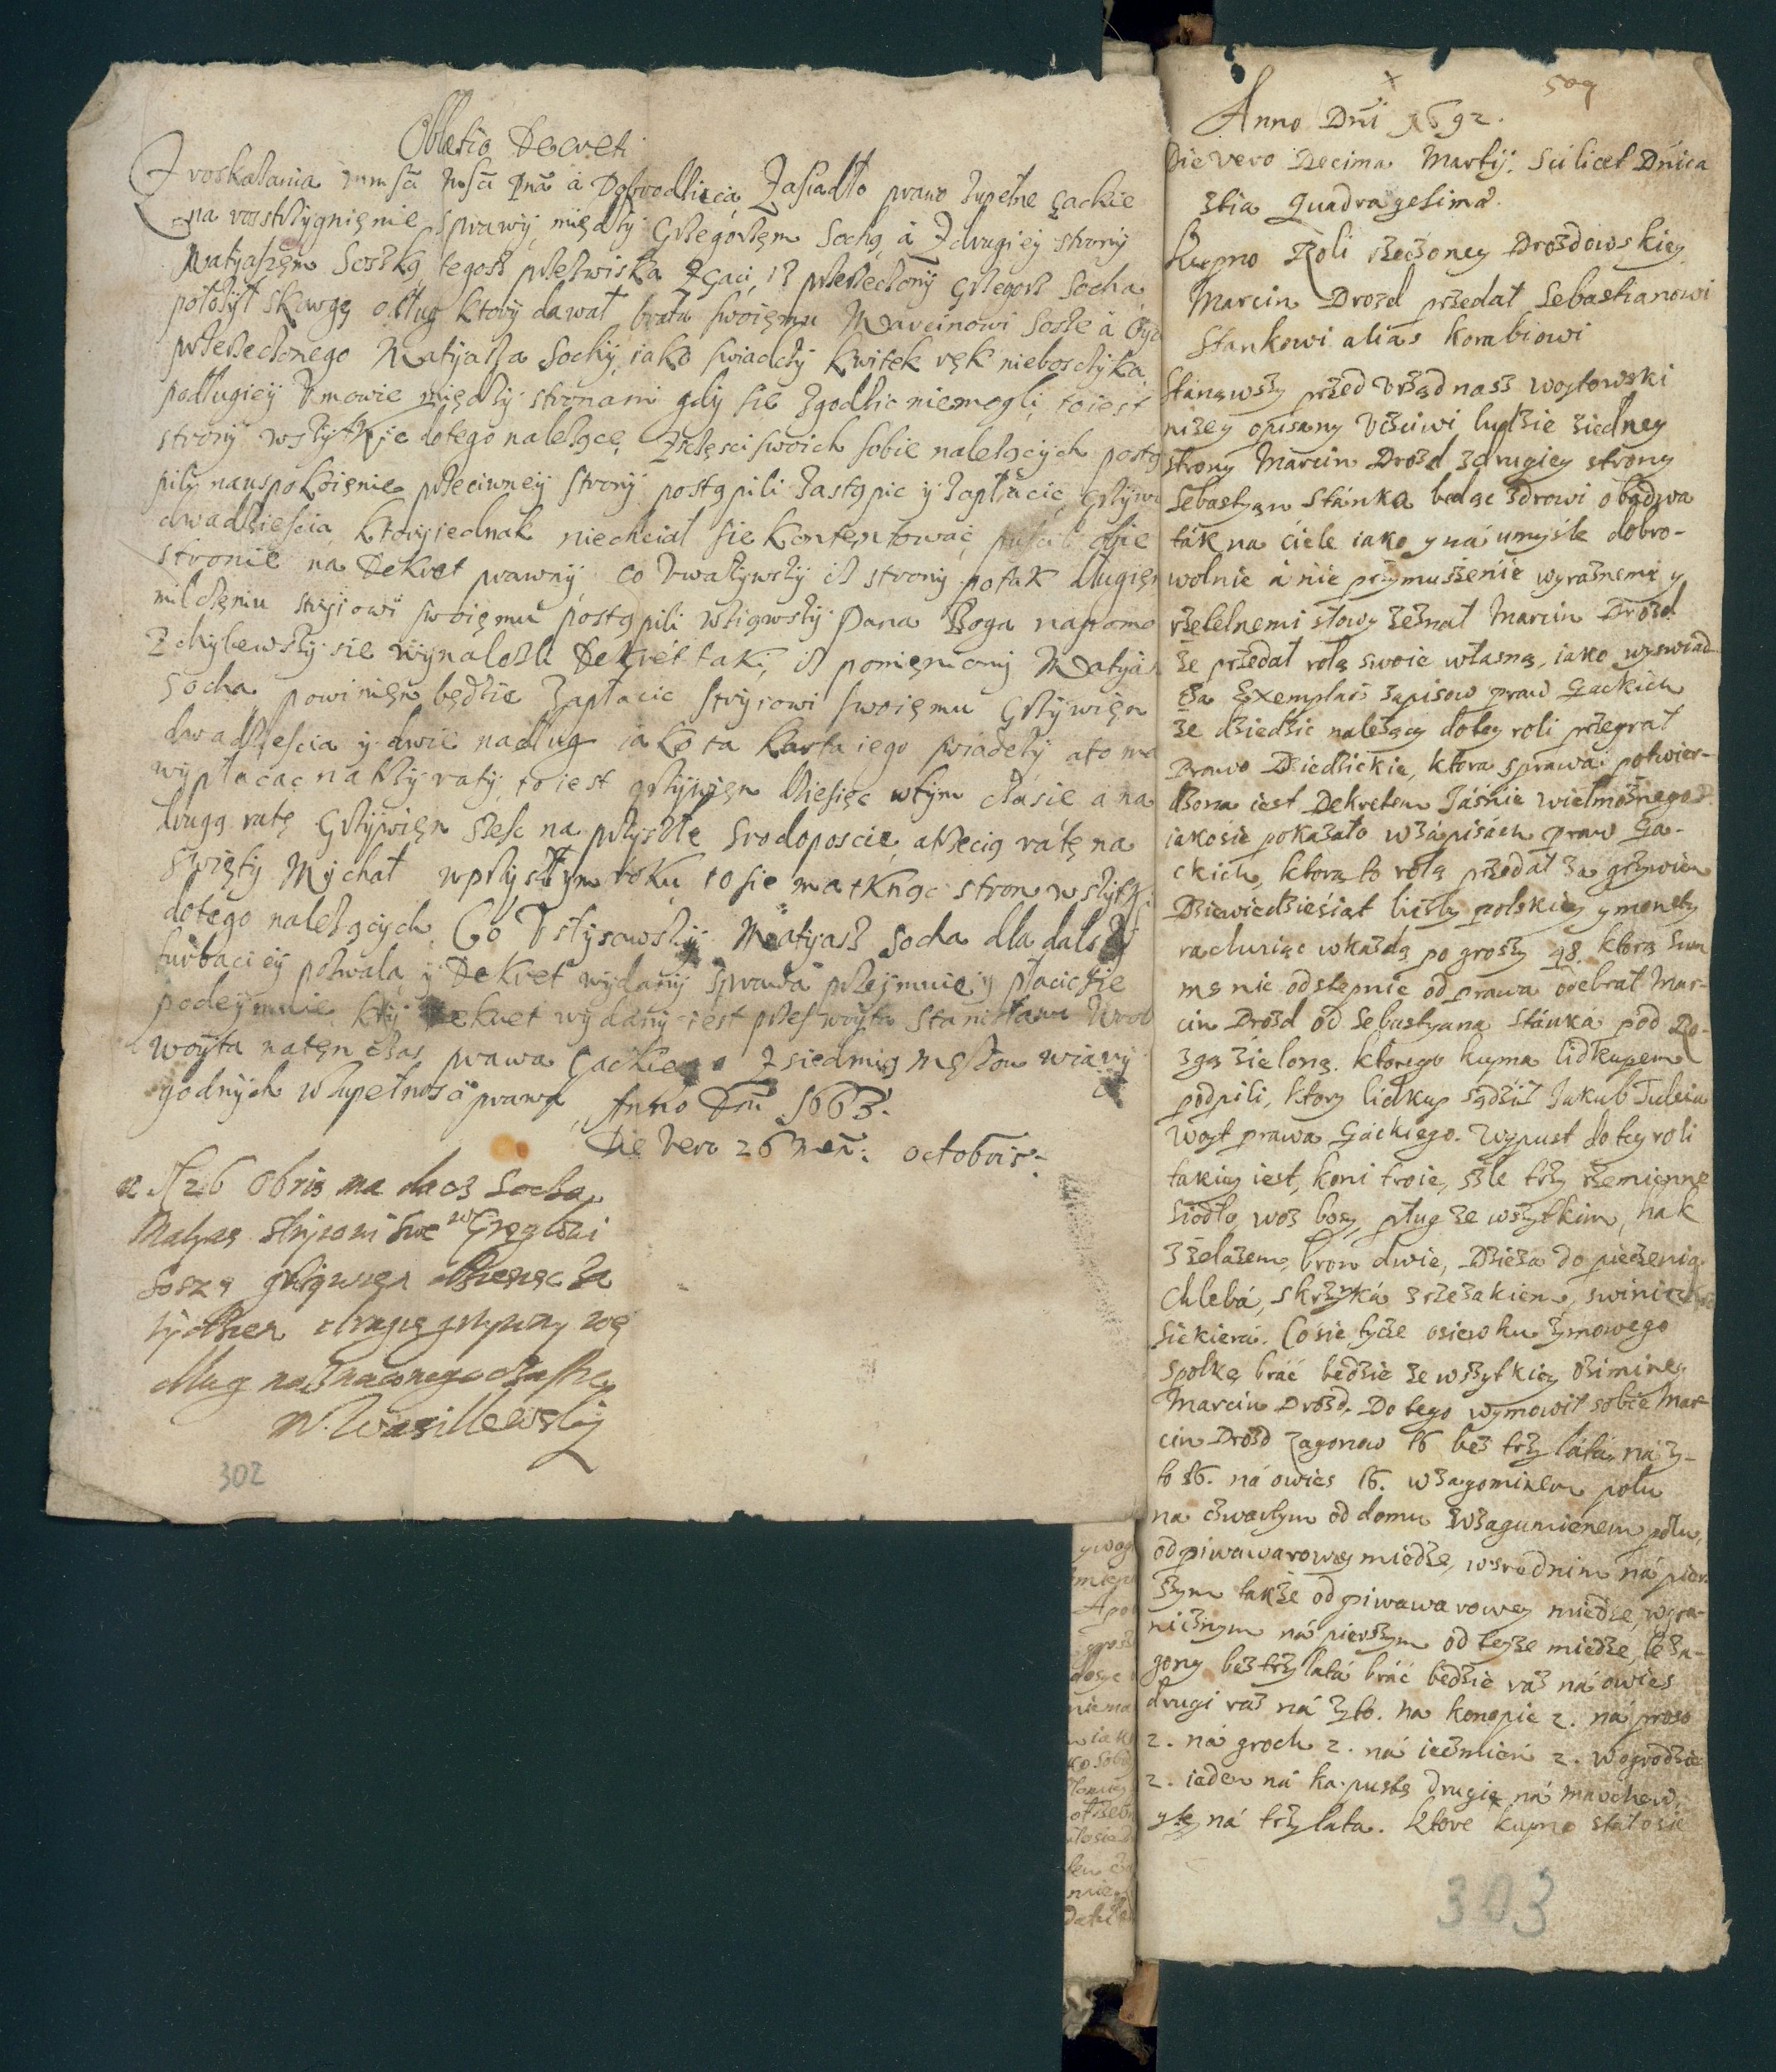 Oblatio Decreti
Z roskazania Dobrodzieia Zasiadło prawo zupełne Gackie
na rosstrzygnięnie sprawÿ międzÿ Grzegorzem Sochą a Z drugieÿ stronÿ
Matyaszem Soszką tegosz przezwiska Z Gaci, iż przerzeczonÿ Grzegorz Socha
położÿł skargę o dług ktorÿ dawał bratu swoięmu Marcinowi Sosze a
przerzeczonego Matyasza Sochÿ, iako swiadczÿ kwitek ręk nieboszczÿka
podługieÿ Umowie międzÿ stronami gdÿ sie zgodzic niemogli, toiest
stronÿ wszÿtkie dotego należące Z części swoich sobie należących
pilÿ nauspokoięnie przeciwneÿ stronÿ postąpili zastąpic ÿ zapłacic
dwadziescia, ktorÿ iednak niechciał sie kontentowac puscili obie
stronie na Dekret prawnÿ, co Uważÿwszÿ iż stronÿ potak długięm
milczęniu strÿiowi swoięmu postąpili wziąwszÿ Pana Boga napomo
Zchylewszÿ sie wÿnalezli Dekret taki, iż pomięnionÿ Matyasz
Socha powinięn będzie zapłacic strÿiowi swoięmu Grzÿwięn
dwadziescia ÿ dwie nadług iako ta karta iego swiadczÿ ato ma
wypłacac na trzÿ ratÿ, toiest grzÿwięn dziesięc wtÿm czasie a na
drugą ratę Grzÿwięn szesc na przÿszłe Srodoposcie, atrzecią ratę na
Swięty Mÿchał wprzÿszłym roku, to sie ma tknąc stron wszÿtk
dotego należącÿch, Co Usłÿsawszÿ Matyasz Socha dla dalszÿ
turbacieÿ pozwala ÿ Dekret wÿdanÿ sprawa przeÿmuie ÿ płacic sie
podeÿmuie, ktÿ Dekret wÿdanÿ iest przes woÿta Stanisława
woÿta natęn czas prawa Gackiego Z siedmią mężow wiarÿ
godnÿch w zupełnosci prawa, Anno Dni 1663.
Die Vero 26 Men: octobris:
26 Obris na dacz Socha
Matyas strÿiowi
Sosze grzÿwięn dziesięc za
tÿdzien drugie grzÿwny
dług
W. Wasillewskÿ
302
509
Anno Dni 1692.
Die vero Decima Martÿ. Scilicet Dnica
3tia Quadragesima.
Kupno Roli rzeczoney Drozdowskiey
Marcin Drozd przedał Sebastianowi
Stankowi alias Korabiowi
Stanąwszy przed Urząd nasz woytowski
nizey opisany Uczciwi ludzie ziedney
strony Marcin Drozd zdrugiey strony
Sebastyan Stánka bedąc zdrowi obadwa
ták na ciele iako y ná umyśle dobro-
wolnie á nie przymuszenie wyraznemi y
rzetelnemi słowy zeznał Marcin Drozd
ze przedał rolą swoie własną, iako wyswiad-
cza Exemplarz zapisow praw Gackich
ze dziedzic nalezący do tey roli przegrał
Prawo Dziedzickie, ktora sprawa potwier-
dzona iest Dekretem Jáśnie wielmożnego P.
iakosie pokazało wzápisách praw Ga-
ckich, ktorą to rolą przedał za grzywien
Dziewiedziesiąt liczby polskiey y monety
rachuiąc wkazdą po groszy 48. ktorą sum
mę nic odstepnie od prawa odebrał Mar-
cin Drozd od Sebastyana Stánka pod Ro-
zgą zieloną. ktorego kupna lidkupem
podpili, ktory lidkup sądził Jakub Tuleia
Woyt prawa Gáckiego. Wypust do tey roli
takiey iest, koni troie, szle trzy rzemienne
Siodło, woz bosy, pług ze wszytkim, hak
z zelazem, bron dwie, Dzieza do pieczenia
Chlebá, skrzynká z rzezakiem, swinie
Siekierá. Co sie tycze osiewku zymowego
spolką bráć bedzie ze wszytkiey oziminey
Marcin Drozd. Do tego wymowił sobie Mar-
cin Drozd zagonow 16 bez trzy látá, ná zy-
to 16. ná owies 16. w zagominem polu
na czwartym od domu wzagumienem polu,
od piwawarowey miedze, wsrednim ná pier-
szym takze od piwawarowey miedze, wgra-
nicznym ná pierszym od teyze miedze, te za-
gony bez trzy latá bráć bedzie raz ná owies
drugi raz ná zyto. na konopie 2. ná proso
2. ná groch 2. ná ieczmień 2. w ogrodzie
2. ieden ná kapustę drugie ná marchew,
y te ná trzy lata. Ktore kupno stało sie
303